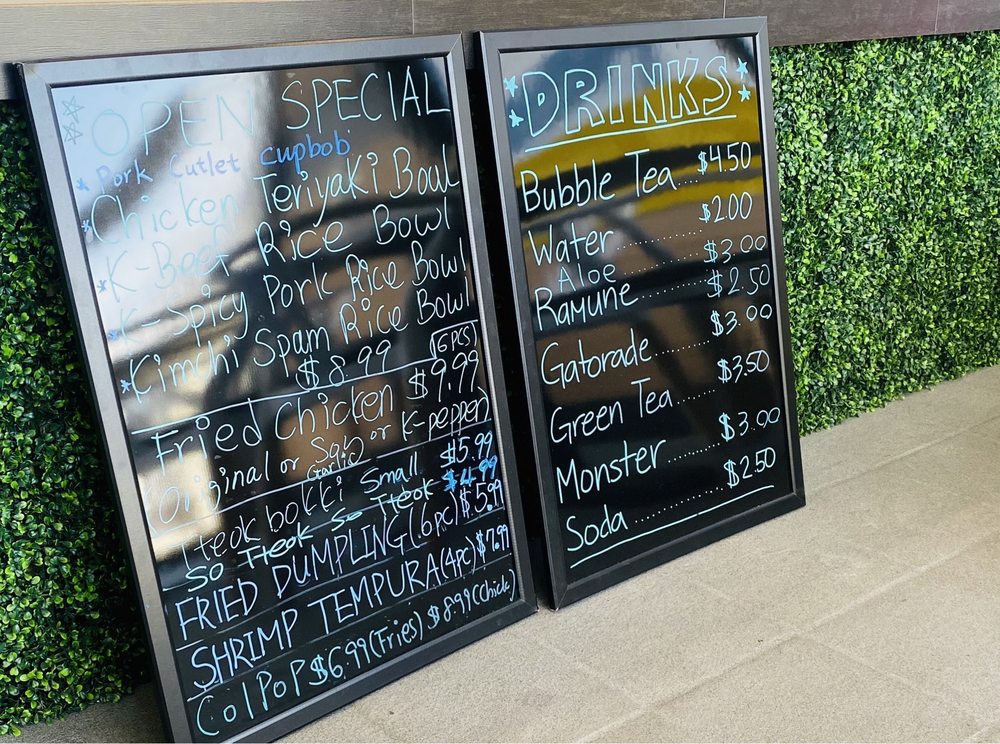 OPEN SPECIAL
Pork Cutlet cupbob
Chicken Teriyaki Bowl
K-Beef Rice Bowl
K-Spicy Pork Rice Bowl
Kimchi Spam Rice Bowl
$8.99
Fried chicken (6PCS) $9.99
(Original or Soy Garlic or K-pepper)
Tteokbokki Small $5.99
So Tteok So Tteok $4.99
FRIED DUMPLING(6pc) $5.99
SHRIMP TEMPURA(4pc) $7.99
Col Pop $6.99(Fries) $8.99(Chick)
DRINKS
Bubble Tea... $4.50
Water............ $2.00
Aloe ............ $3.00
Ramune ............ $2.50
Gatorade ........ $3.00
Green Tea ...... $3.50
Monster ....... $3.00
Soda ............ $2.50